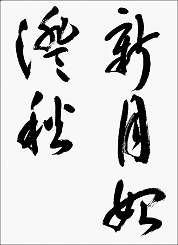 新月始
澄秋